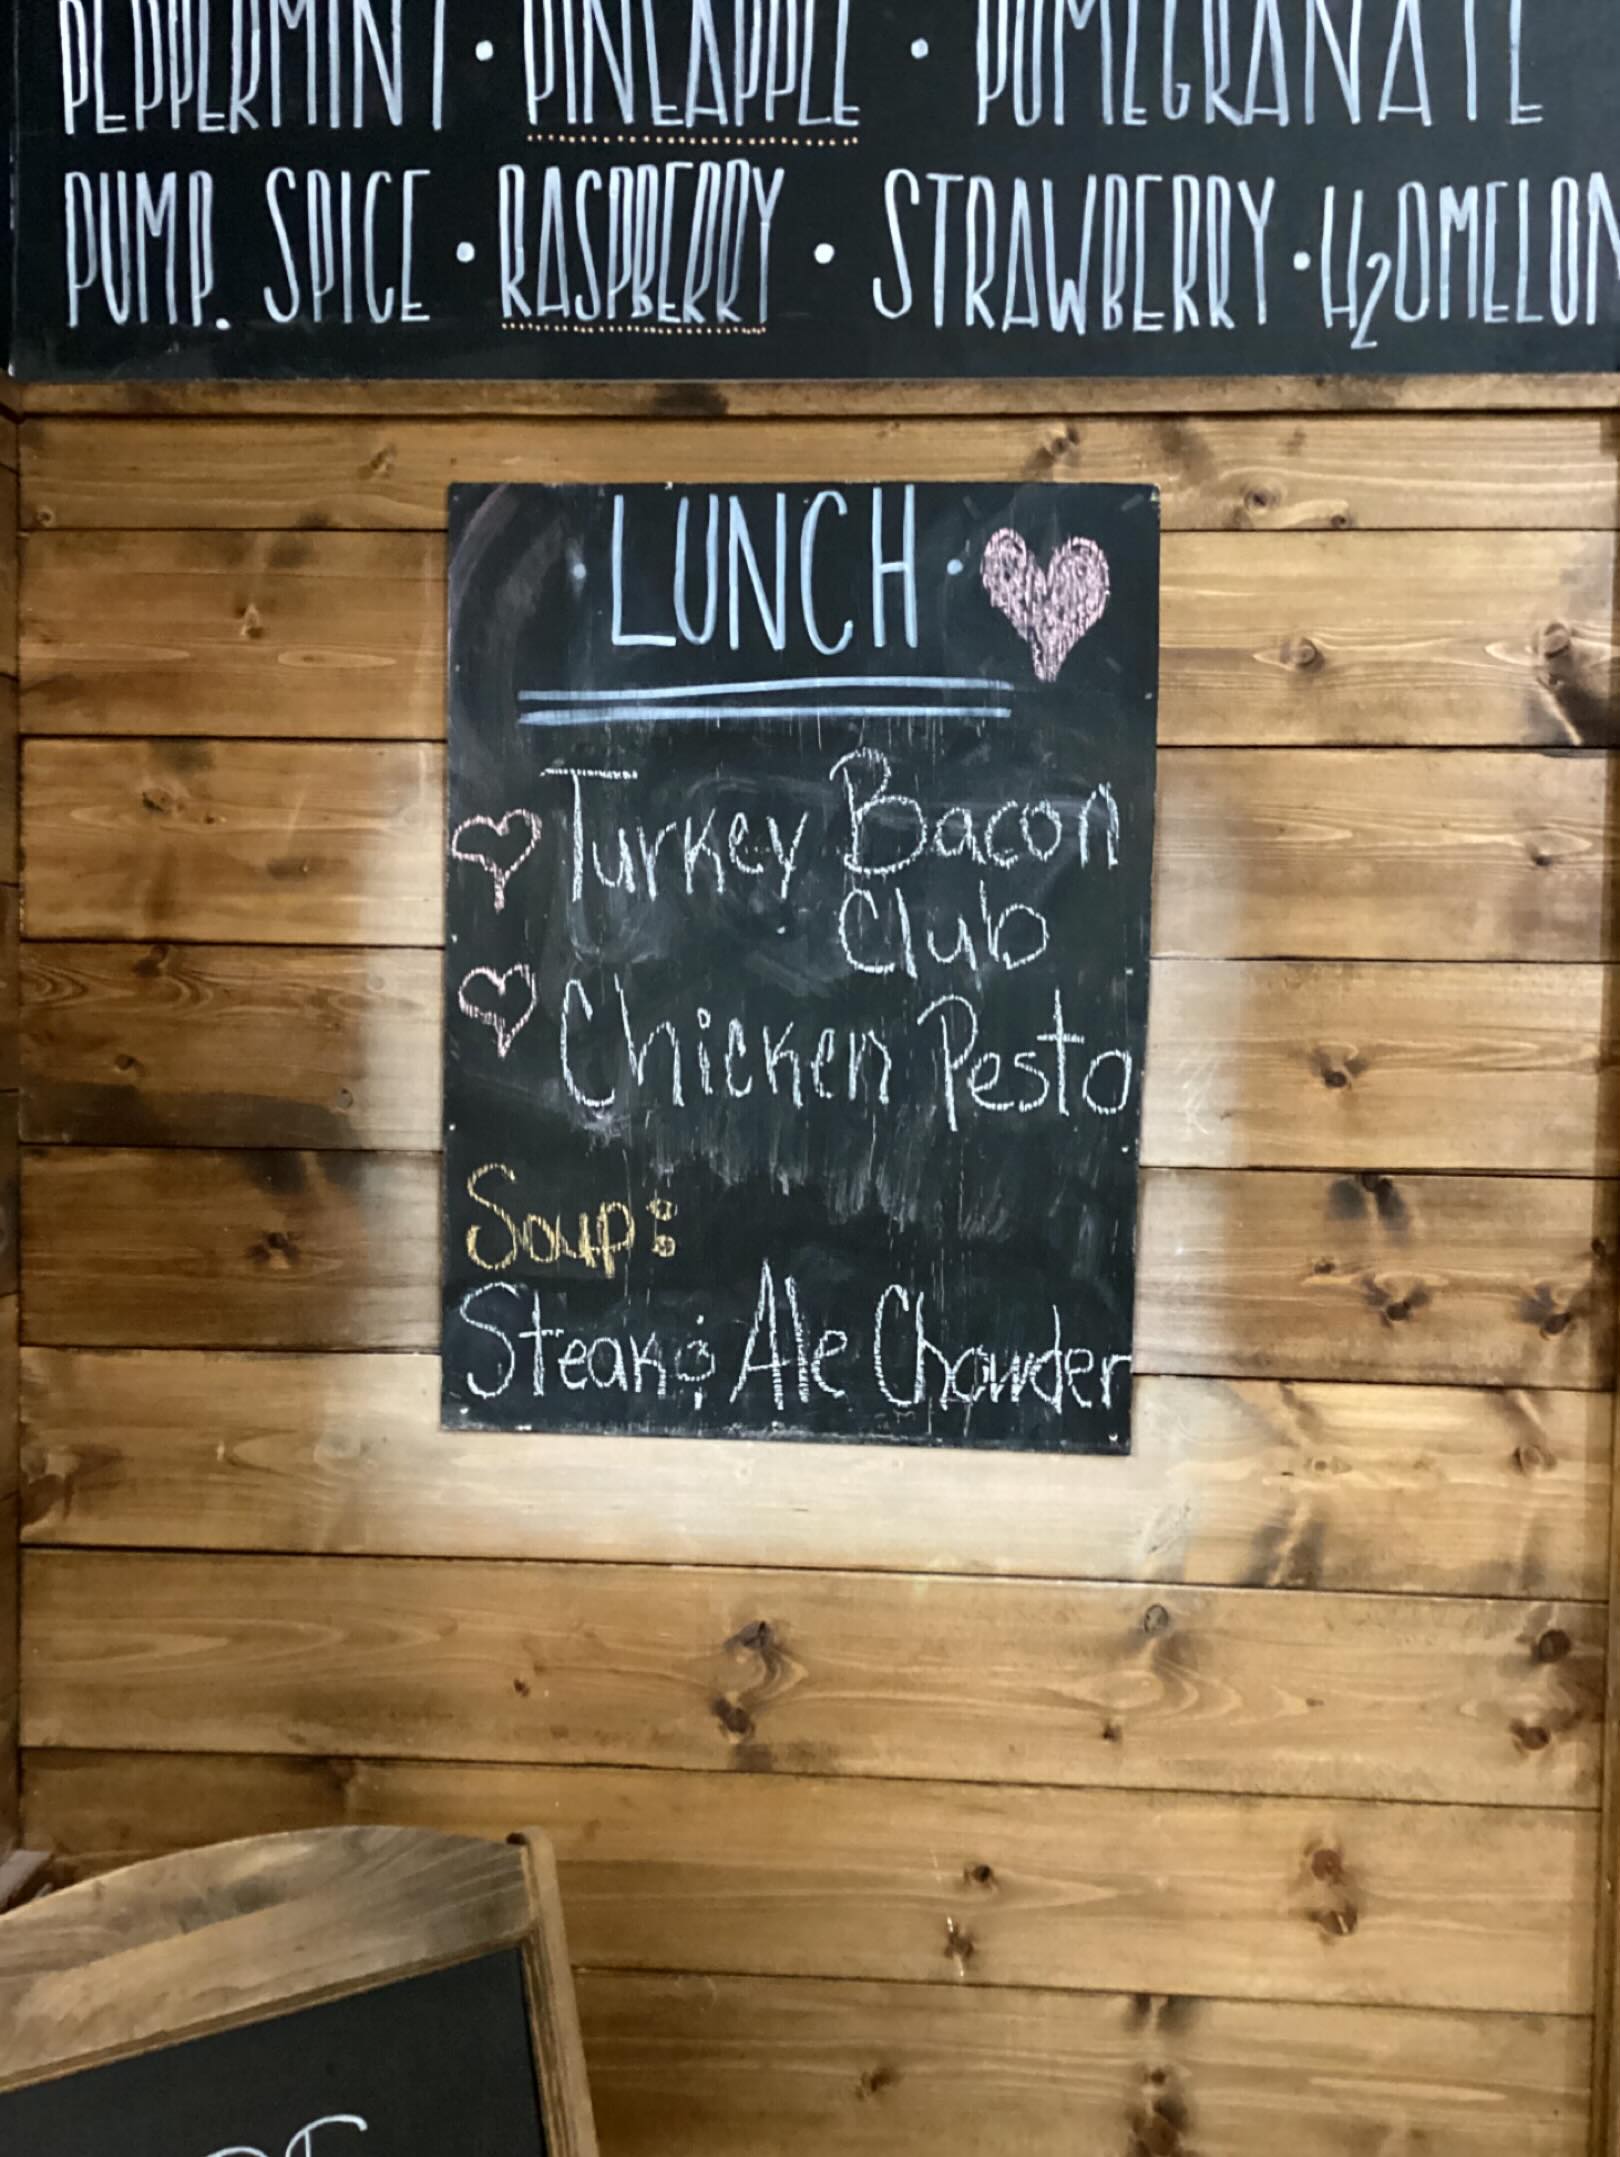 PEPPERMINT • PINEAPPLE • POMEGRANATE
PUMP. SPICE • RASPBERRY • STRAWBERRY • H2OMELON
• LUNCH •
Turkey Bacon
Club
Chicken Pesto
Soup:
Steak & Ale Chowder